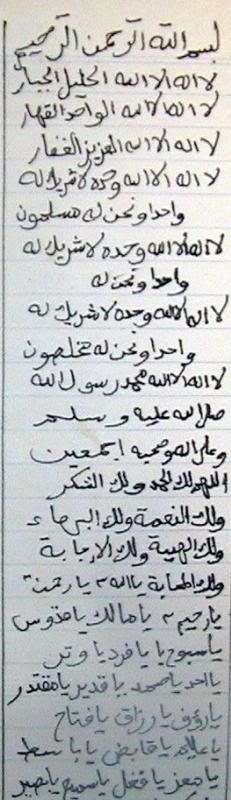 بسم الله الرحمن الرحيم
لا اله الا الله الجليل الجبار
لا اله الا الله الواحد القهار
لا اله الا الله العزيز الغفار
لا اله الا الله وحده لا شريك له
واحدا ونحن له مسلمون
لا اله الا الله وحده لا شريك له
واحدا ونحن له
لا اله الا الله وحده لا شريك له
واحدا ونحن له مخلصون
لا اله الا الله محمد رسول الله
صلى الله عليه وسلم
وعلى اله وصحبه اجمعين
اللهم لك الحمد ولك الشكر
ولك النعمة ولك البهاء
ولك الهيبة ولك الإرجابة
ولك المهابة يا الله يا رحمن
يا رحيم يا مالك يا قدوس
يا سبوح يا يا فرد يا وتر
يا احد يا صمد يا قدير يا مقتدر
يا رؤف يا رزاق يا فتاح
يا عليم يا قابض يا باسط
يا معز يا يا سميع يا بصير